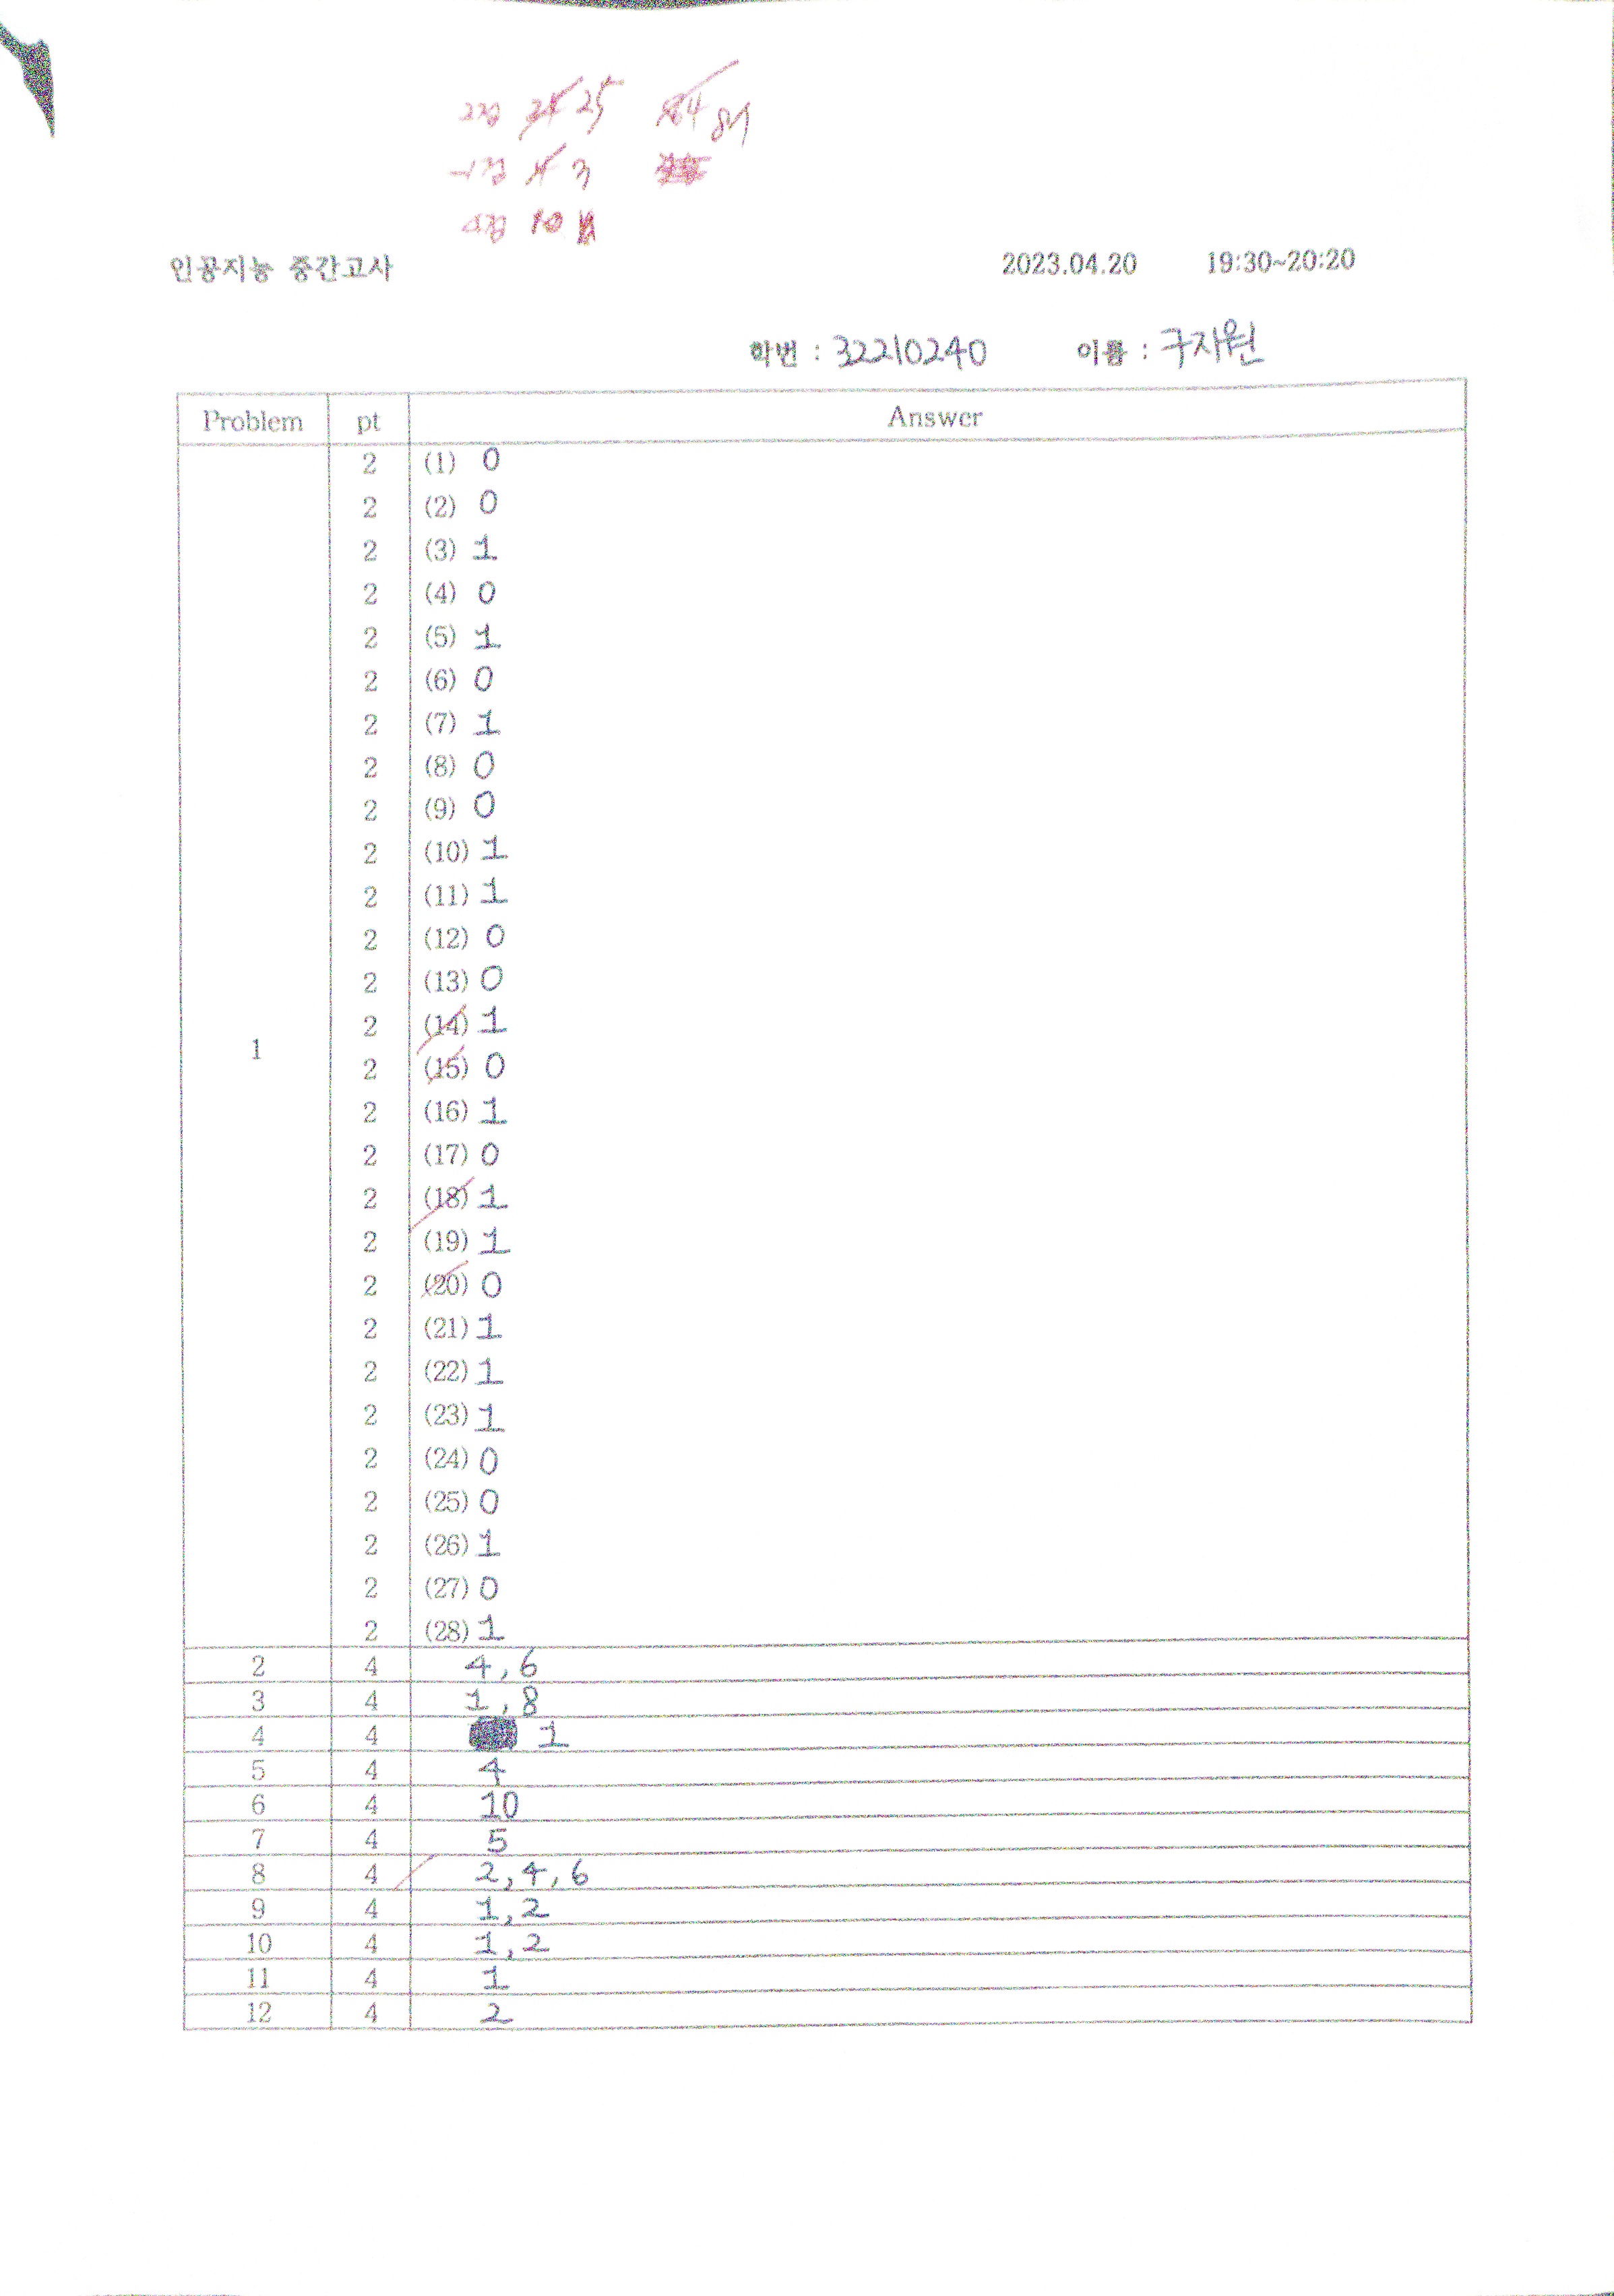 2점 24 25 84 87
-1점 4 3
4점 10
인공지능 중간고사 2023.04.20 19:30~20:20
학번 : 32210240 이름 : 구자원
Problem pt Answer
2 (1) 0
2 (2) 0
2 (3) 1
2 (4) 0
2 (5) 1
2 (6) 0
2 (7) 1
2 (8) 0
2 (9) 0
2 (10) 1
2 (11) 1
2 (12) 0
2 (13) 0
2 (14) 1
1
2 (15) 0
2 (16) 1
2 (17) 0
2 (18) 1
2 (19) 1
2 (20) 0
2 (21) 1
2 (22) 1
2 (23) 1
2 (24) 0
2 (25) 0
2 (26) 1
2 (27) 0
2 (28) 1
2 4 4,6
3 4 1,8
4 4 1
5 4 4
6 4 10
7 4 5
8 4 2,4,6
9 4 1,2
10 4 1,2
11 4 1
12 4 2